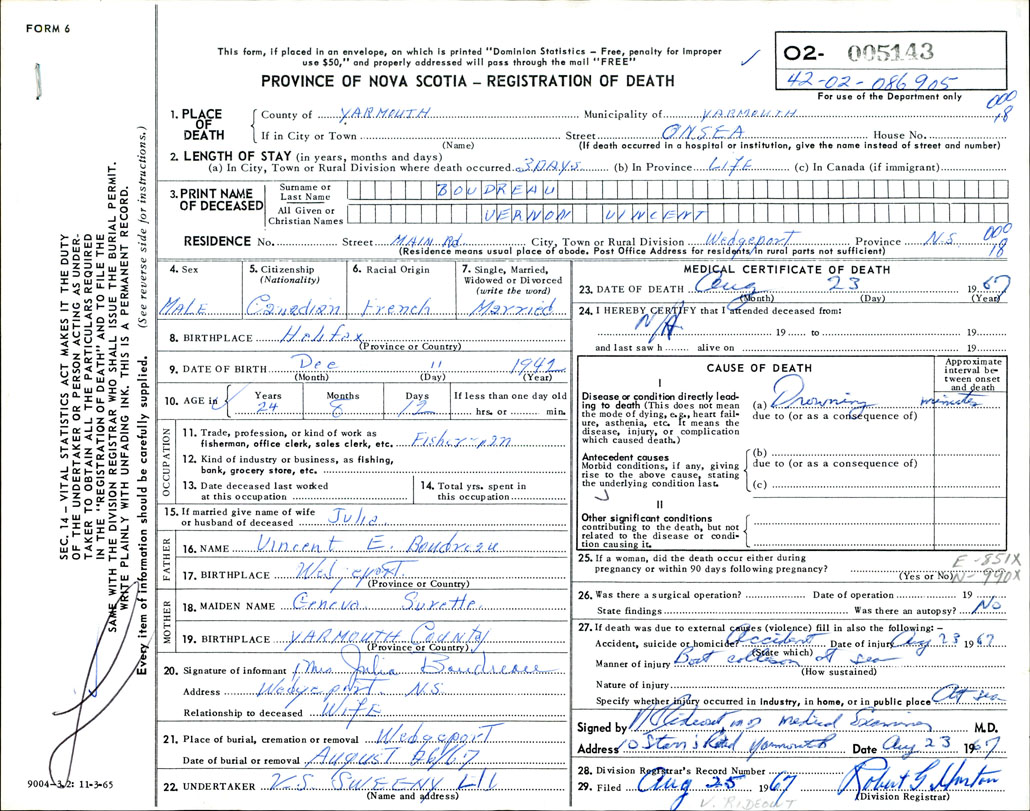 FORM 6
This form, if placed in an envelope, on which is printed "Dominion Statistics – Free, penalty for improper
use $50," and properly addressed will pass through the mail "FREE"
PROVINCE OF NOVA SCOTIA – REGISTRATION OF DEATH
02- 005143
42-02-086905
For use of the Department only
000
18
1. PLACE OF DEATH
County of YARMOUTH Municipality of YARMOUTH
If in City or Town (Name) Street ON SEA House No.
(If death occurred in a hospital or institution, give the name instead of street and number)
2. LENGTH OF STAY (in years, months and days)
(a) In City, Town or Rural Division where death occurred 3 DAYS (b) In Province LIFE (c) In Canada (if immigrant)
3. PRINT NAME OF DECEASED
Surname or Last Name BOUDREAU
All Given or Christian Names VERNON VINCENT
RESIDENCE No. Street MAIN Rd. City, Town or Rural Division Wedgeport Province N.S.
000
18
(Residence means usual place of abode. Post Office Address for residents in rural parts not sufficient)
4. Sex MALE
5. Citizenship (Nationality) Canadian
6. Racial Origin French
7. Single, Married, Widowed or Divorced (write the word) Married
8. BIRTHPLACE Halifax
(Province or Country)
9. DATE OF BIRTH Dec 11 1942
(Month) (Day) (Year)
10. AGE in Years 24 Months 8 Days 12 If less than one day old hrs. or min.
OCCUPATION
11. Trade, profession, or kind of work as fisherman, office clerk, sales clerk, etc. Fisherman
12. Kind of industry or business, as fishing, bank, grocery store, etc.
13. Date deceased last worked at this occupation
14. Total yrs. spent in this occupation
15. If married give name of wife or husband of deceased Julia
FATHER
16. NAME Vincent E. Boudreau
17. BIRTHPLACE Wedgeport
(Province or Country)
MOTHER
18. MAIDEN NAME Geneva Surette
19. BIRTHPLACE YARMOUTH County
(Province or Country)
20. Signature of informant Mrs. Julia Boudreau
Address Wedgeport N.S.
Relationship to deceased WIFE
21. Place of burial, cremation or removal Wedgeport
Date of burial or removal August 26/67
22. UNDERTAKER V.S. SWEENY Ltd
(Name and address)
MEDICAL CERTIFICATE OF DEATH
23. DATE OF DEATH Aug 23 1967
(Month) (Day) (Year)
24. I HEREBY CERTIFY that I attended deceased from:
N/A 19 to 19
and last saw h alive on 19
CAUSE OF DEATH
Approximate interval between onset and death
I
Disease or condition directly leading to death (This does not mean the mode of dying, e.g., heart failure, asthenia, etc. It means the disease, injury, or complication which caused death.)
(a) Drowning minutes
due to (or as a consequence of)
Antecedent causes
Morbid conditions, if any, giving rise to the above cause, stating the underlying condition last.
(b)
due to (or as a consequence of)
(c)
II
Other significant conditions
contributing to the death, but not related to the disease or condition causing it.
25. If a woman, did the death occur either during pregnancy or within 90 days following pregnancy?
(Yes or No)
E-851X
N-990X
26. Was there a surgical operation? Date of operation 19
State findings Was there an autopsy? No
27. If death was due to external causes (violence) fill in also the following: –
Accident, suicide or homicide? Accident Date of injury Aug 23 1967
(State which)
Manner of injury Boat collison at sea
(How sustained)
Nature of injury
Specify whether injury occurred in industry, in home, or in public place At sea
Signed by V Rideout Medical Examiner M.D.
Address 10 Yarmouth Date Aug 23 1967
28. Division Registrar's Record Number
29. Filed Aug 25 1967 Robert G. Horton
(Division Registrar)
V. RIDEOUT
SEC. 14 – VITAL STATISTICS ACT MAKES IT THE DUTY
OF THE UNDERTAKER OR PERSON ACTING AS UNDER-
TAKER TO OBTAIN ALL THE PARTICULARS REQUIRED
IN THE "REGISTRATION OF DEATH" AND TO FILE THE
SAME WITH THE DIVISION REGISTRAR WHO SHALL ISSUE THE BURIAL PERMIT.
WRITE PLAINLY WITH UNFADING INK. THIS IS A PERMANENT RECORD.
Every item of information should be carefully supplied. (See reverse side for instructions.)
9004-3.2: 11-3-65